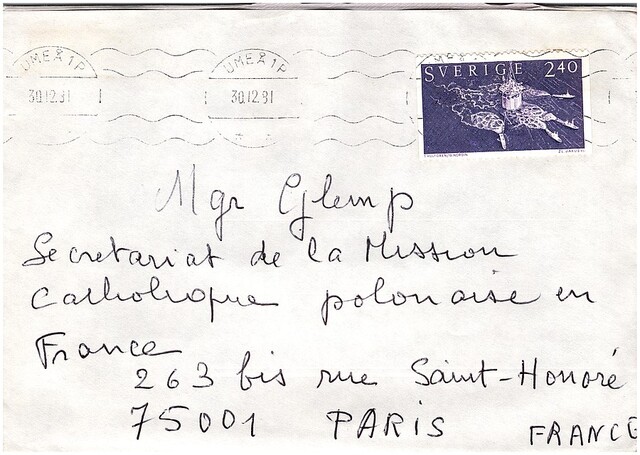 UMEÅ 1P
30.12.81
UMEÅ 1P
30.12.81
SVERIGE 240
Mgr Glemp
Secretariat de la Mission
Catholique polonaise en
France
263 bis rue Saint-Honoré
75001 PARIS FRANCE